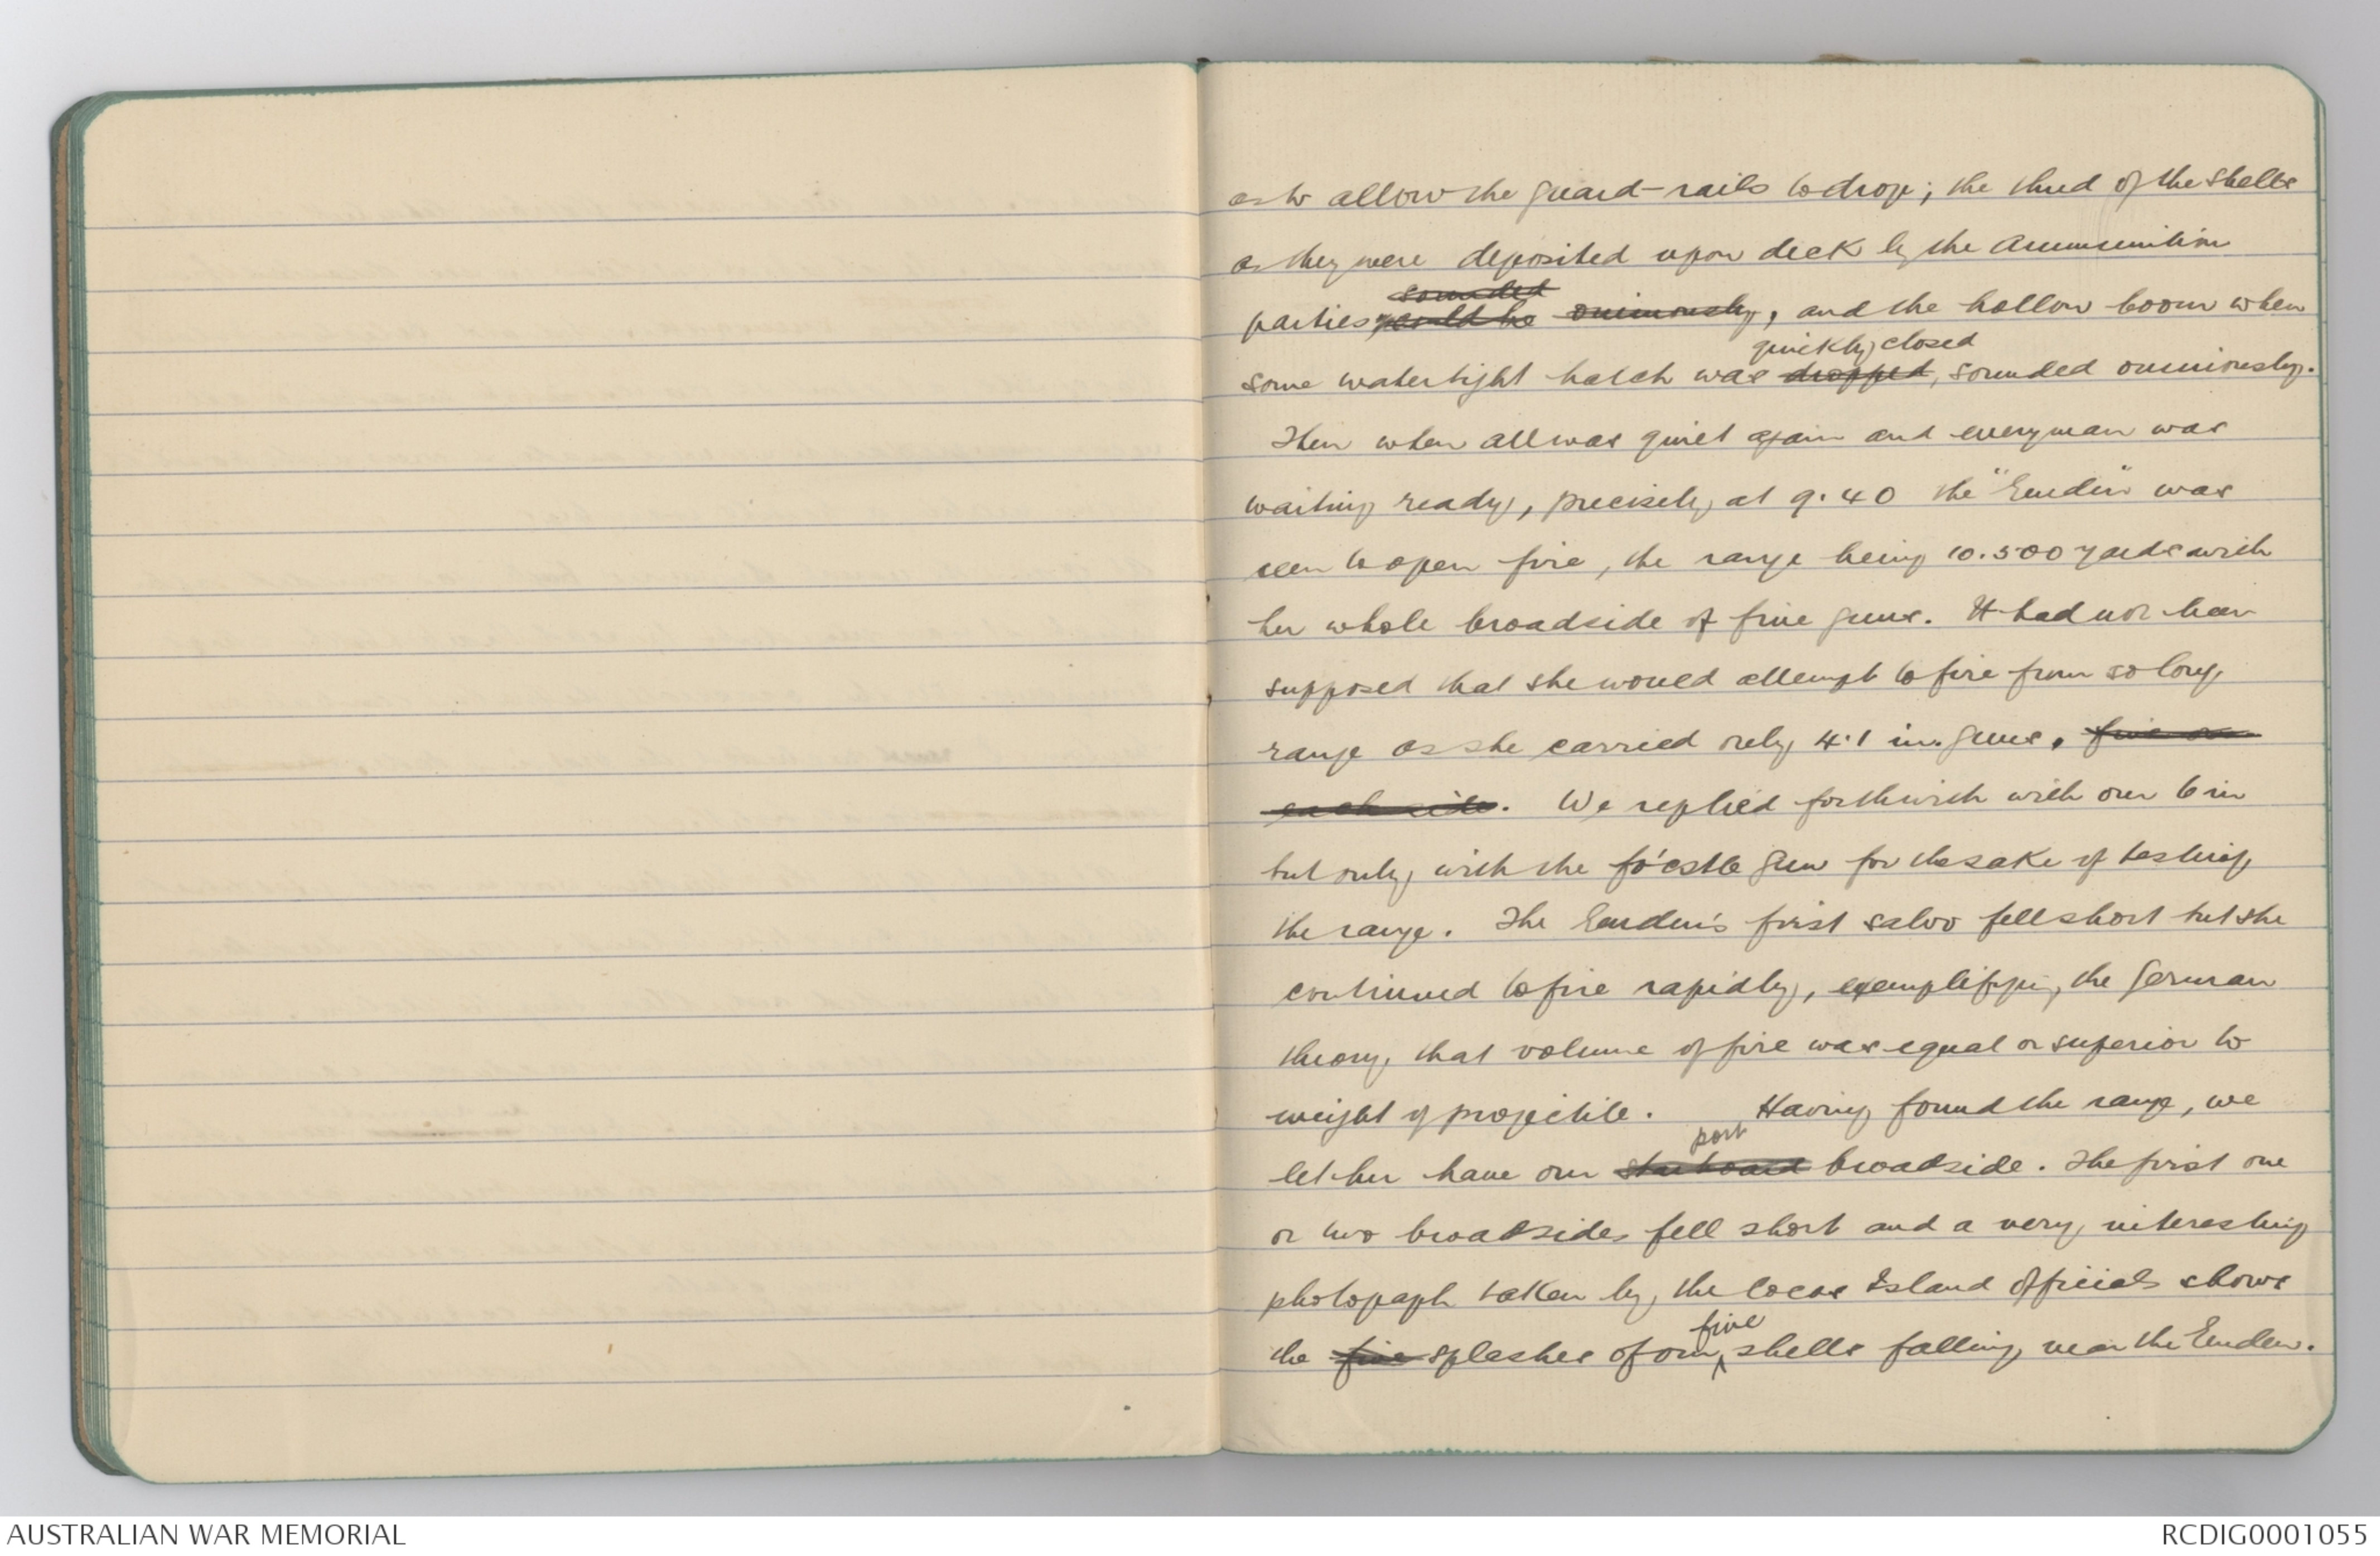 as to allow the guard-rails to drop; the thud of the shells
as they were deposited upon deck by the ammunition
sounded
parties could be ominously, and the hollow boom when
quickly closed
some watertight hatch was dropped, sounded ominously.
Then when all was quiet again and every man was
waiting ready, precisely at 9.40 the "Emden" was
seen to open fire, the range being 10.500 yards with
her whole broadside of five guns. It had not been
supposed that she would attempt to fire from so long
range as she carried only 4.1 in. guns. five on
each side. We replied forthwith with our 6 in
but only with the fo'cstle gun for the sake of testing
the range. The Emden's first salvo fell short but she
continued to fire rapidly, exemplifying the German
theory that volume of fire was equal or superior to
weight of projectile. Having found the range, we
port
let her have our starboard broadside. The first one
or two broadsides fell short and a very interesting
photograph taken by the Cocos Island officials shows
five
the five splashes of our shells falling near the Emden.
AUSTRALIAN WAR MEMORIAL
RCDIG0001055